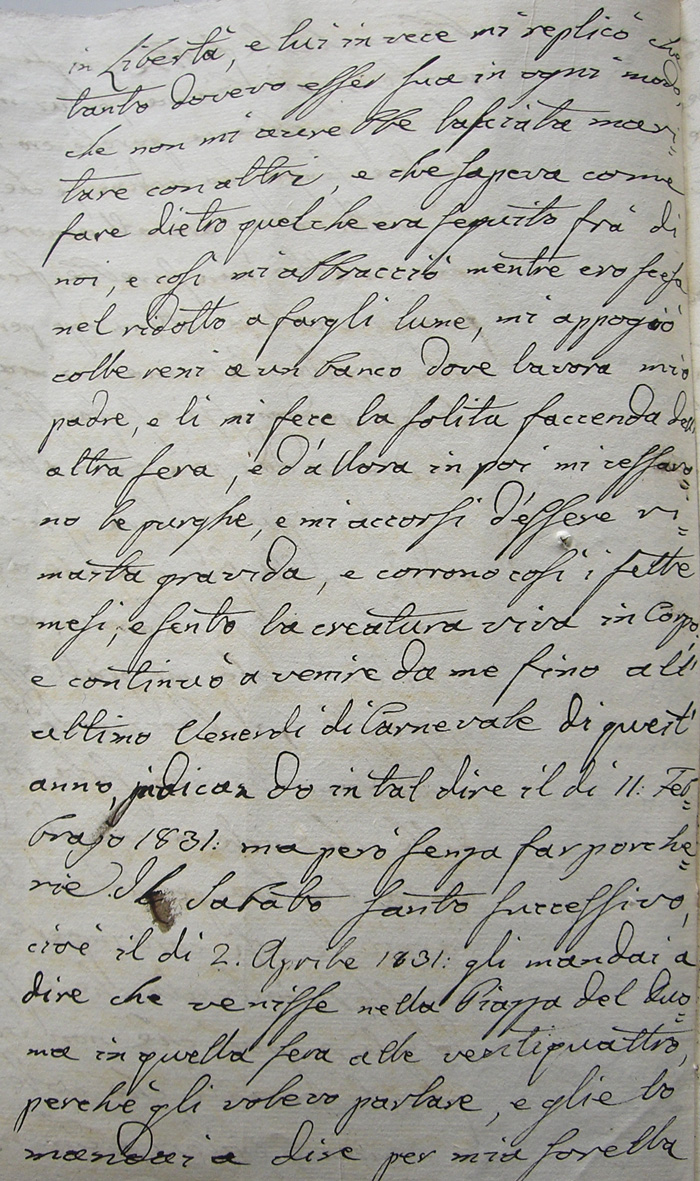 in Libertà, e lui invece mi replicò che
tanto dovevo esser sua in ogni modo,
che non mi averebbe lasciata mari=
tare con altri, e che sapeva come
fare dietro quelche era seguito frà di
noi, e così mi abbracciò mentre ero scesa
nel ridotto a fargli lume, mi appogiò
colle reni a un banco dove lavora mio
padre, e li mi fece la solita faccenda dell
altra sera, e d'allora in poi mi cessaro=
no le purghe, e mi accorsi d'essere ri=
masta gravida, e corrono così i sette
mesi, e sento la creatura viva in Corpo,
e continuò a venire da me fino all'
ultimo Venerdì di Carnevale di quest'
anno, indican do in tal dire il dì 11: Feb=
brajo 1831: ma però senza far porche=
rie. Il Sabato Santo successivo,
cioè il dì 2. Aprile 1831: gli mandai a
dire che venisse nella Piazza del Duo=
mo in quella sera alle ventiquattro,
perchè gli volevo parlare, e glie lo
mandai a dire per mia sorella